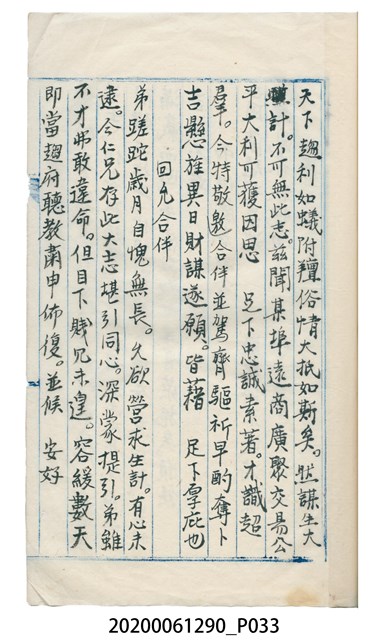 天下趨利如蟻附羶俗情大抵如斯矣。然謀生大
計。不可無此志。茲聞某埠遠商廣聚交易公
平大利可獲因思　足下忠誠素著。才識超
羣。今特敬邀合伴並駕齊驅祈早酌奪卜
吉懸旌異日財謀遂願。皆藉　足下厚庇也
回允合伴
弟蹉跎歲月自愧無長。久欲營求生計。有心未
逮。今仁兄存此大志堪引同心。深蒙提引。弟雖
不才弗敢違命。但目下賤冗未遑。容緩數天
即當趨府聽教肅申佈復。並候　安好
20200061290_P033